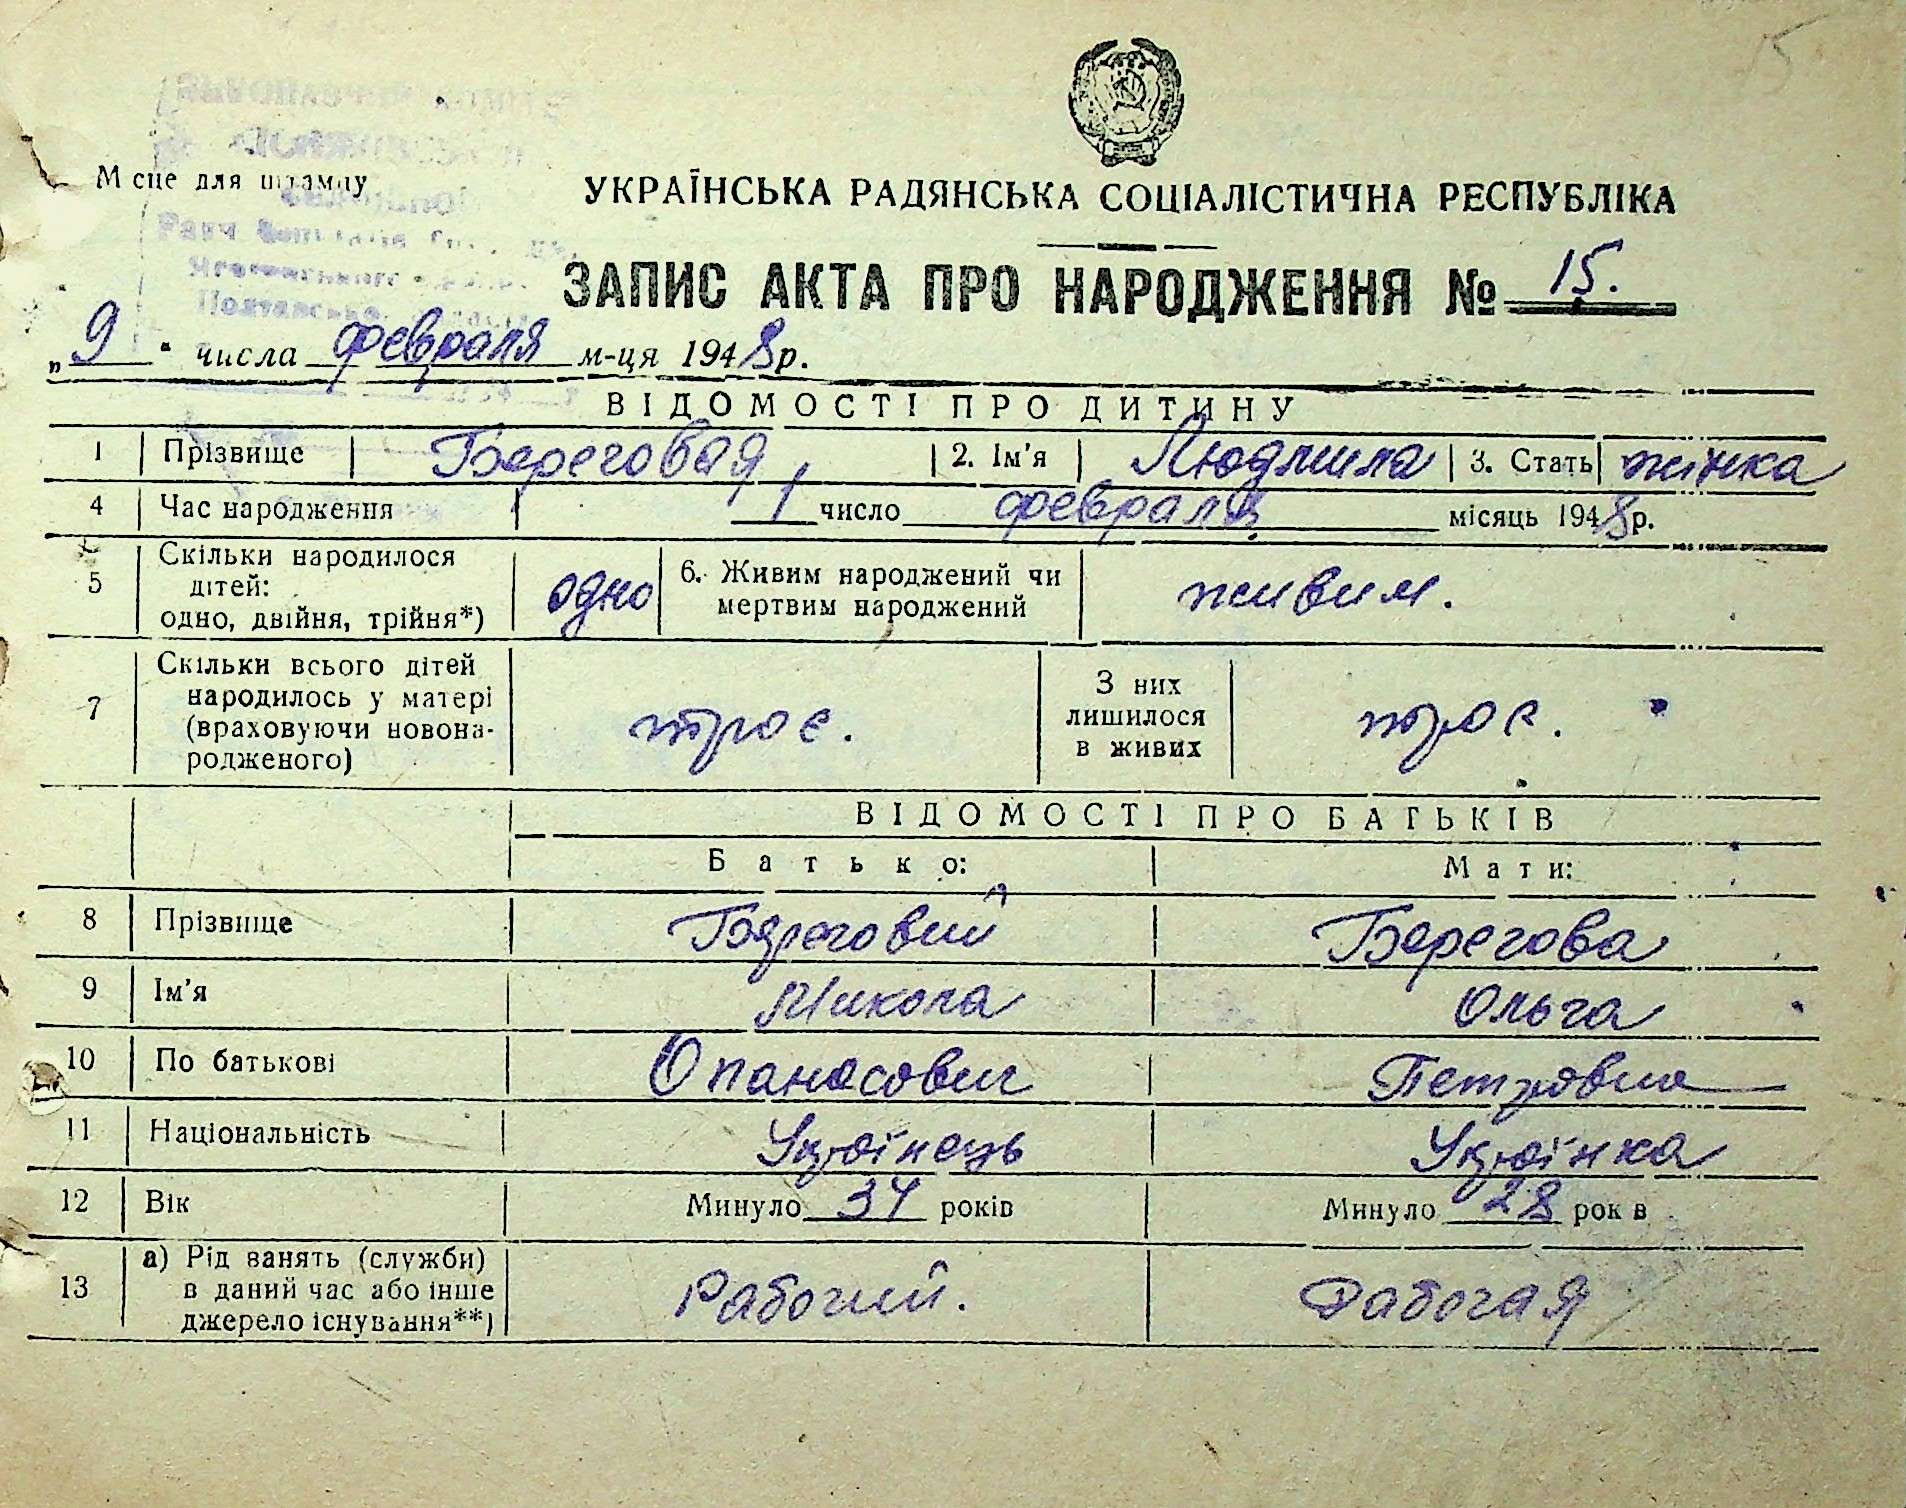 15
Місце для штампу
УКРАЇНСЬКА РАДЯНСЬКА СОЦІАЛІСТИЧНА РЕСПУБЛІКА
ЗАПИС АКТА ПРО НАРОДЖЕННЯ № 15.
„9“ числа февраля м-ця 1948 р.
ВІДОМОСТІ ПРО ДИТИНУ
1 Прізвище Береговая 2. Ім'я Людмила 3. Стать жінка
4 Час народження 1 число февраля місяць 1948 р.
5 Скільки народилося дітей: одно, двійня, трійня*) одно 6. Живим народжений чи мертвим народжений живим.
7 Скільки всього дітей народилось у матері (враховуючи новонародженого) троє. З них лишилося в живих троє.
ВІДОМОСТІ ПРО БАТЬКІВ
Батько: Мати:
8 Прізвище Береговий Берегова
9 Ім'я Микола Ольга
10 По батькові Опанасович Петровна
11 Національність Українець Українка
12 Вік Минуло 34 років Минуло 28 років
13 а) Рід занять (служби) в даний час або інше джерело існування**) Рабочий. Рабочая